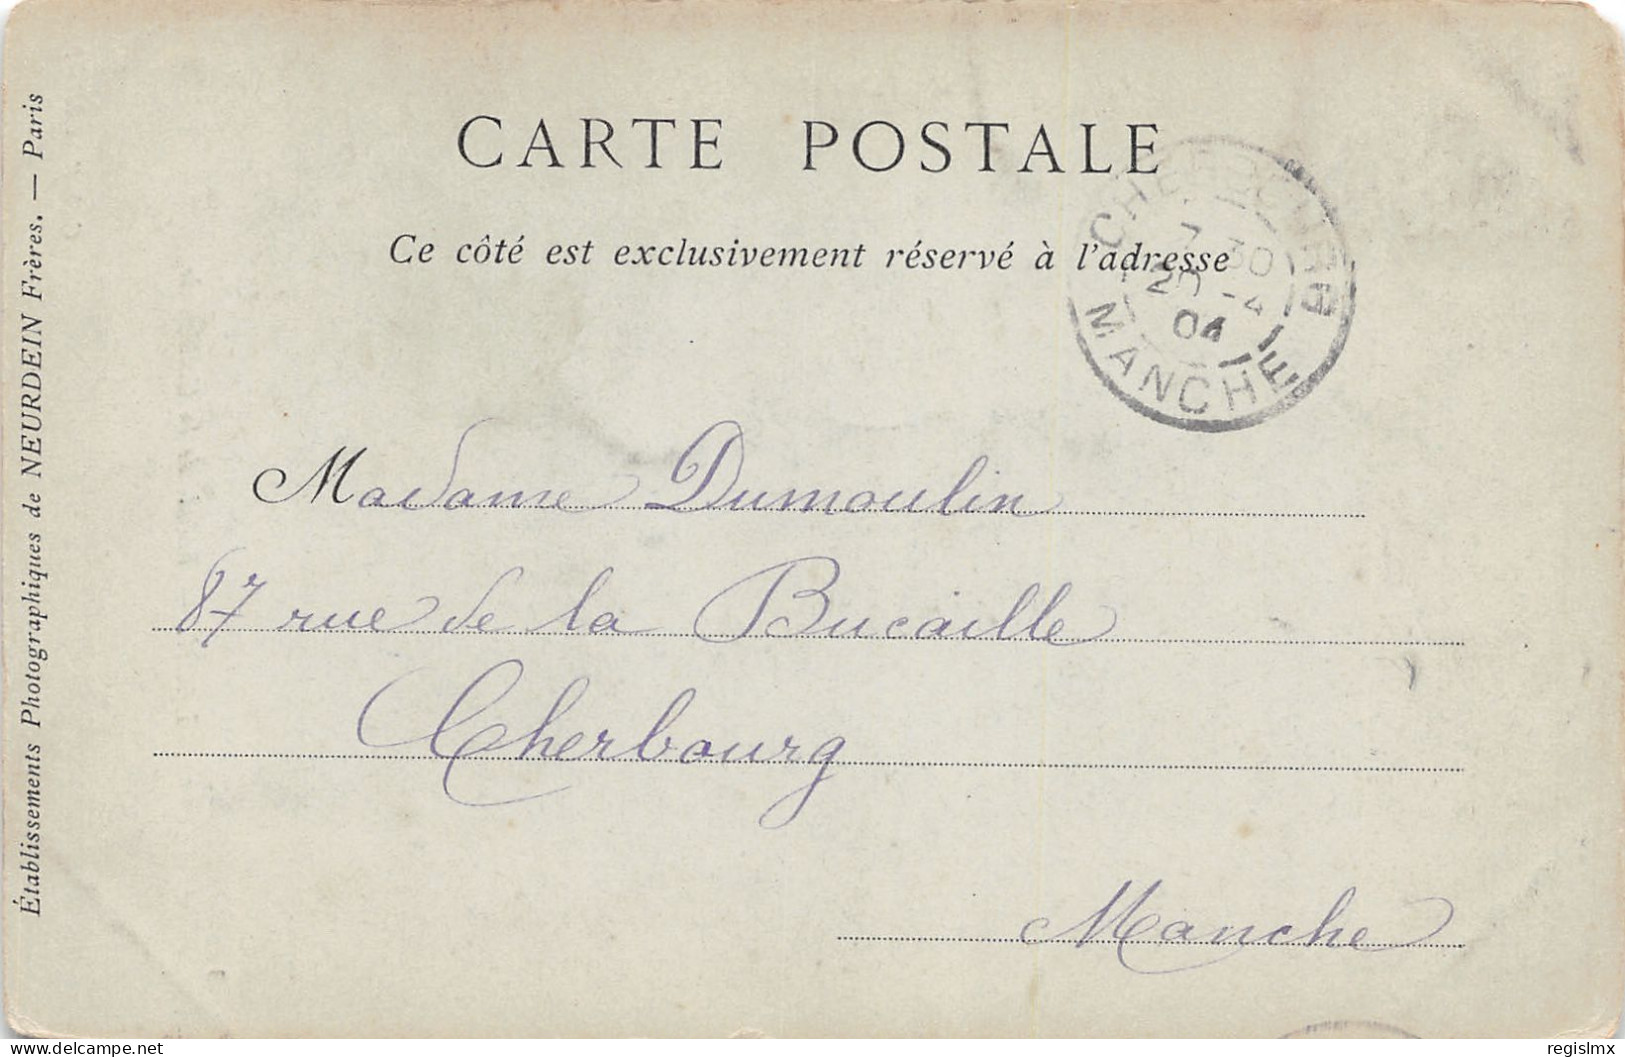 CARTE POSTALE
Ce côté est exclusivement réservé à l'adresse
CHERBOURG
7 30
20 -4
04
MANCHE
Madame Dumoulin
87 rue de la Bucaille
Cherbourg
Manche
Établissements Photographiques de NEURDEIN Frères. — Paris
delcampe.net
regislmx